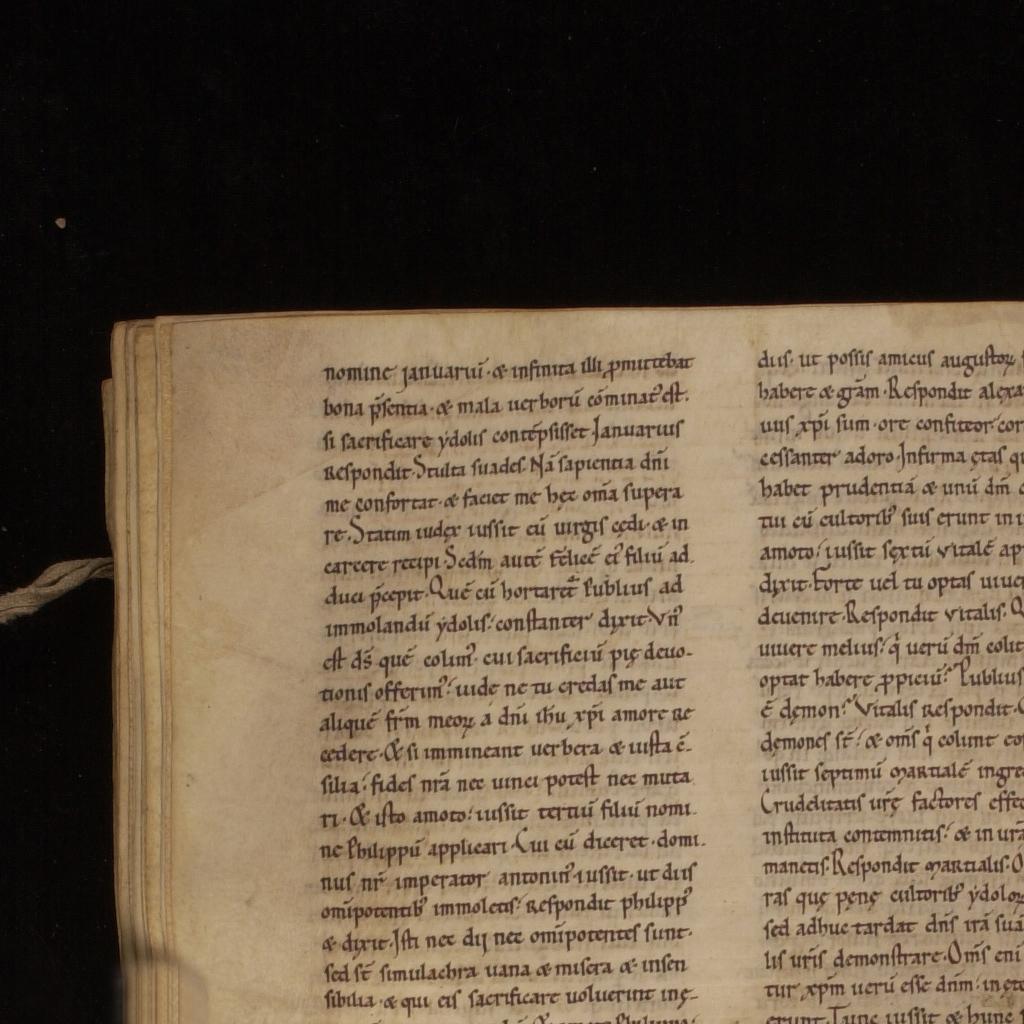 nomine januariū · & infinita illi ꝓmittebat
bona p̄sentia · & mala uerborū cōminat᷒ est ·
si sacrificare ẏdolis contēpsisset Januarius
Respondit · Stulta suades · Nā sapientia dn̄i
me confortat · & faciet me hęc om̄a supera
re · Statim iudex iussit eū uirgis cędi · & in
carcere recipi · Sedm̄ autē felicē ei᷒ filiū ad
duci p̄cepit · Quē cū hortaret᷑ Publius ad
immolandū ẏdolis · constanter dixit · Vn᷒
est ds̄ quē colim᷒ · cui sacrificiū pię deuo-
tionis offerim᷒ · uide ne tu credas me aut
aliquē fr̄m meoꝝ a dn̄i ih̄u xp̄i amore re
cedere · & si immineant uerbera & iusta c̄-
silia · fides nr̄a nec uinci potest nec muta
ri · & isto amoto · iussit tertiū filiū nomi
ne Philippū applicari · Cui cū diceret · domi
nus nr̄ imperator antonin᷒ iussit · ut diis
om̄ipotentib᷒ immoletis · Respondit philipp᷒
& dixit · Isti nec dij nec om̄ipotentes sunt ·
sed st̄ simulachra uana & misera & insen
sibilia · & qui eis sacrificare uoluerint inę-
diis · ut possis amicus augustoꝝ
habere & grām · Respondit alexa
uus xp̄i sum · ore confiteor · cor
cessanter adoro · Infirma ętas qu
habet prudentiā & unū dm̄ c
tui cū cultorib᷒ suis erunt in i
amoto · iussit sextū vitalē ap
dixit · Forte uel tu optas uiue
deuenire · Respondit vitalis · Q
uiuere melius · q̇ uerū dm̄ colit
optat habere ꝓpiciū · Publius
ē dęmon · Vitalis Respondit ·
dęmones st̄ · & om̄s q̇ colunt co
iussit septimū martialē ingre
Crudelitatis ur̄ę factores effe
instituta contemnitis · & in urā
manetis · Respondit martialis · O
ras quę pęnę cultorib᷒ ẏdoloꝝ
sed adhuc tardat dn̄s irā suā
lis ur̄is demonstrare · Om̄s eni
tur xp̄m uerū esse dn̄m · in ęte
erunt · Tunc iussit & hunc